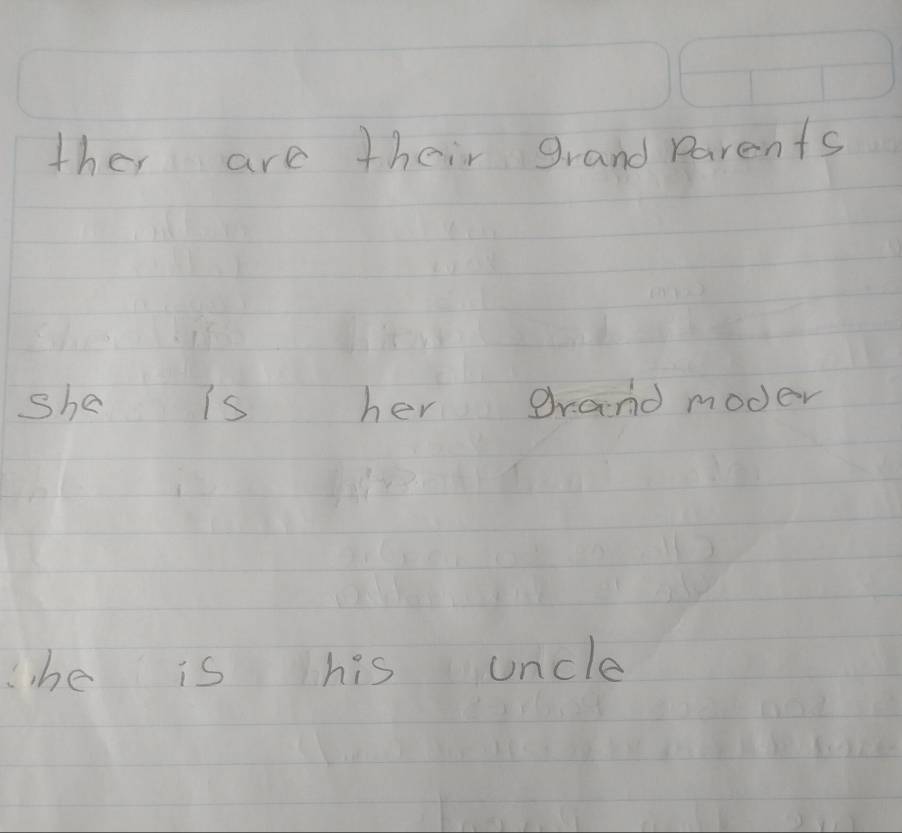 ther are their grand parents
she is her grand moder
he is his uncle